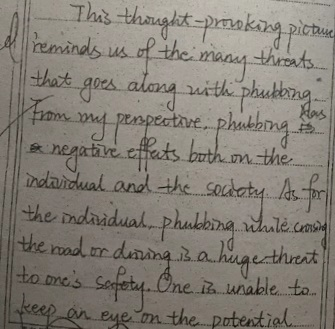 This thought-provoking picture
reminds us of the many threats
that goes along with phubbing.
From my perspective, phubbing has
negative effects both on the
individual and the society. As for
the individual, phubbing while crossing
the road or driving is a huge threat
to one's safety. One is unable to
keep an eye on the potential